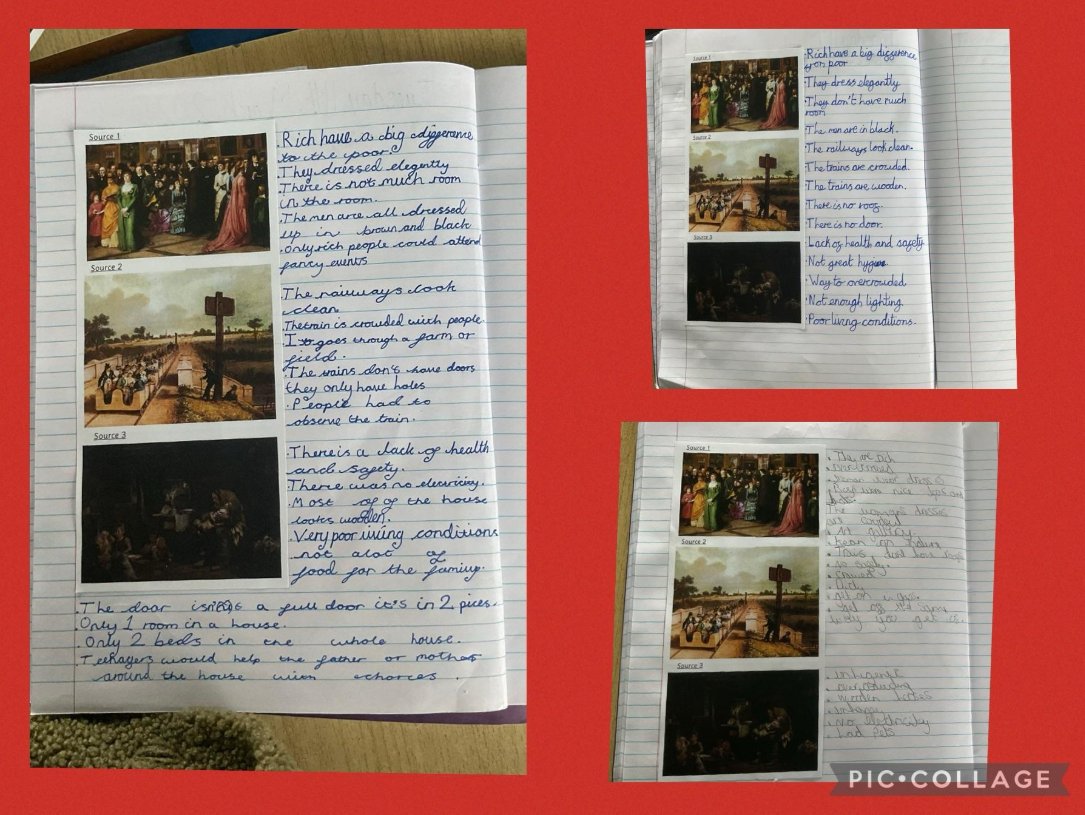 Source 1
Rich have a big diggerence
to the poor.
They dressed elegently
There is not much room
in the room.
The men are all dressed
up in brown and black
Only rich people could attend
fancy events
Source 2
The railways look
clean
The train is crowded with people.
It goes through a farm or
field.
The trains don't have doors
they only have holes
People had to
observe the train.
Source 3
There is a lack of health
and sagety.
There was no electricity.
Most og of the house
looks wooden.
Very poor living conditions
not alot og
food for the family.
The door isn't a full door it's in 2 pices.
Only 1 room in a house.
Only 2 beds in the whole house.
Teenagers would help the father or mother
around the house with
Source 1
Rich have a big diggerence
grom poor
They dress elegantly
They don't have much
room
The men are in black.
The railways look clean.
Source 2
The trains are crowded.
The trains are wooden.
There is no roog.
There is no door.
Source 3
Lack og health and sagety
Not great
Way to overcrowded.
Not enough lighting.
Poor living conditions.
Source 1
rich
The
art gallery
Source 2
Trains dont have roogs
no sagety
crowed
Source 3
wooden
No electricity
had pets
PIC•COLLAGE